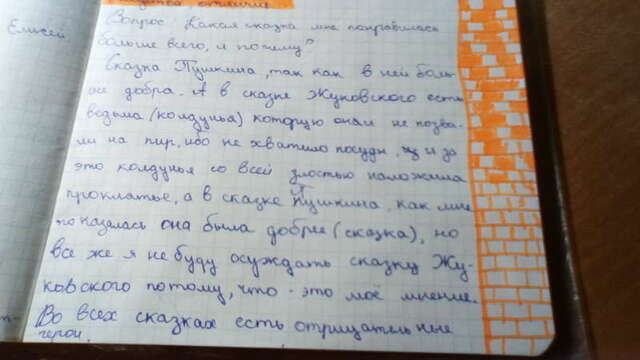 отличие
Елисей
Вопрос: Какая сказка мне понравилась
больше всего, и почему?
Сказка Пушкина, так как в ней боль-
ше добра. А в сказке Жуковского есть
ведьма (колдунья) которую они не позва-
ли на пир, ибо не хватило посуды, и за
это колдунья со всей злостью наложила
проклятье, а в сказке Пушкина, как мне
показалась она была добрее (сказка), но
все же я не буду осуждать сказку Жу-
ковского потому, что - это моё мнение.
Во всех сказках есть отрицательные
герои.